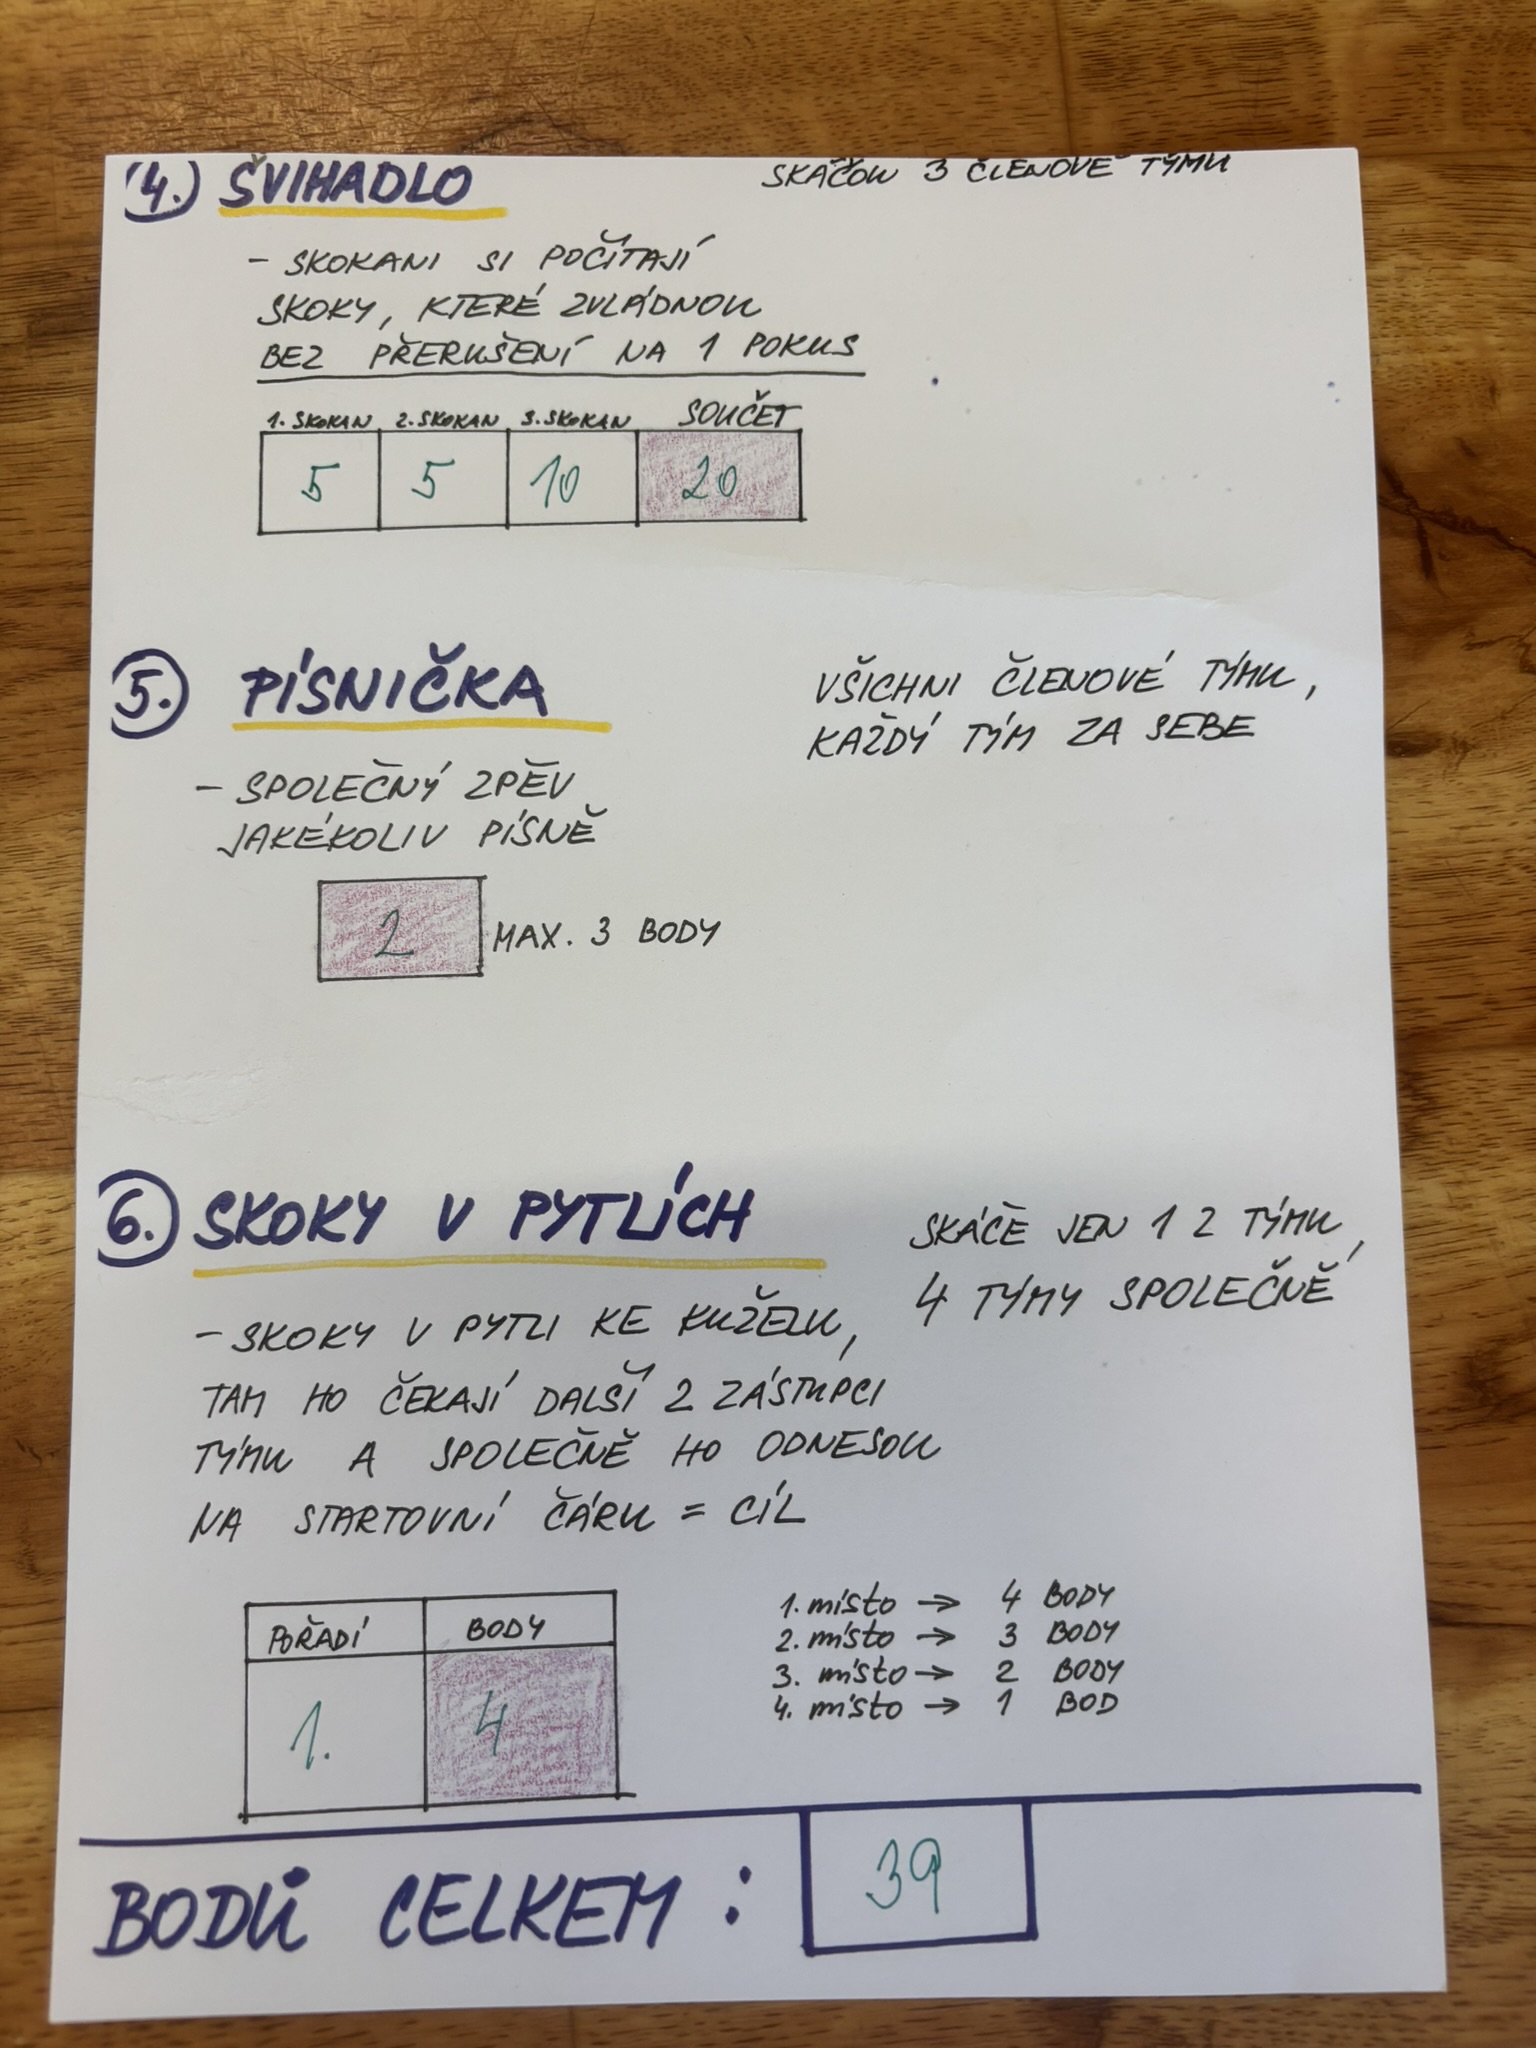 4. ŠVIHADLO
SKÁČOU 3 ČLENOVÉ TÝMU
- SKOKANI SI POČÍTAJÍ
SKOKY, KTERÉ ZVLÁDNOU
BEZ PŘERUŠENÍ NA 1 POKUS
1. SKOKAN 2. SKOKAN 3. SKOKAN SOUČET
5 5 10 20
5. PÍSNIČKA
VŠICHNI ČLENOVÉ TÝMU,
KAŽDÝ TÝM ZA SEBE
- SPOLEČNÝ ZPĚV
JAKÉKOLIV PÍSNĚ
2 MAX. 3 BODY
6. SKOKY V PYTLÍCH
SKÁČE JEN 1 Z TÝMU,
4 TÝMY SPOLEČNĚ
- SKOKY V PYTLI KE KUŽELU,
TAM HO ČEKAJÍ DALŠÍ 2 ZÁSTUPCI
TÝMU A SPOLEČNĚ HO ODNESOU
NA STARTOVNÍ ČÁRU = CÍL
POŘADÍ BODY
1. 4
1. místo → 4 BODY
2. místo → 3 BODY
3. místo → 2 BODY
4. místo → 1 BOD
BODŮ CELKEM : 39